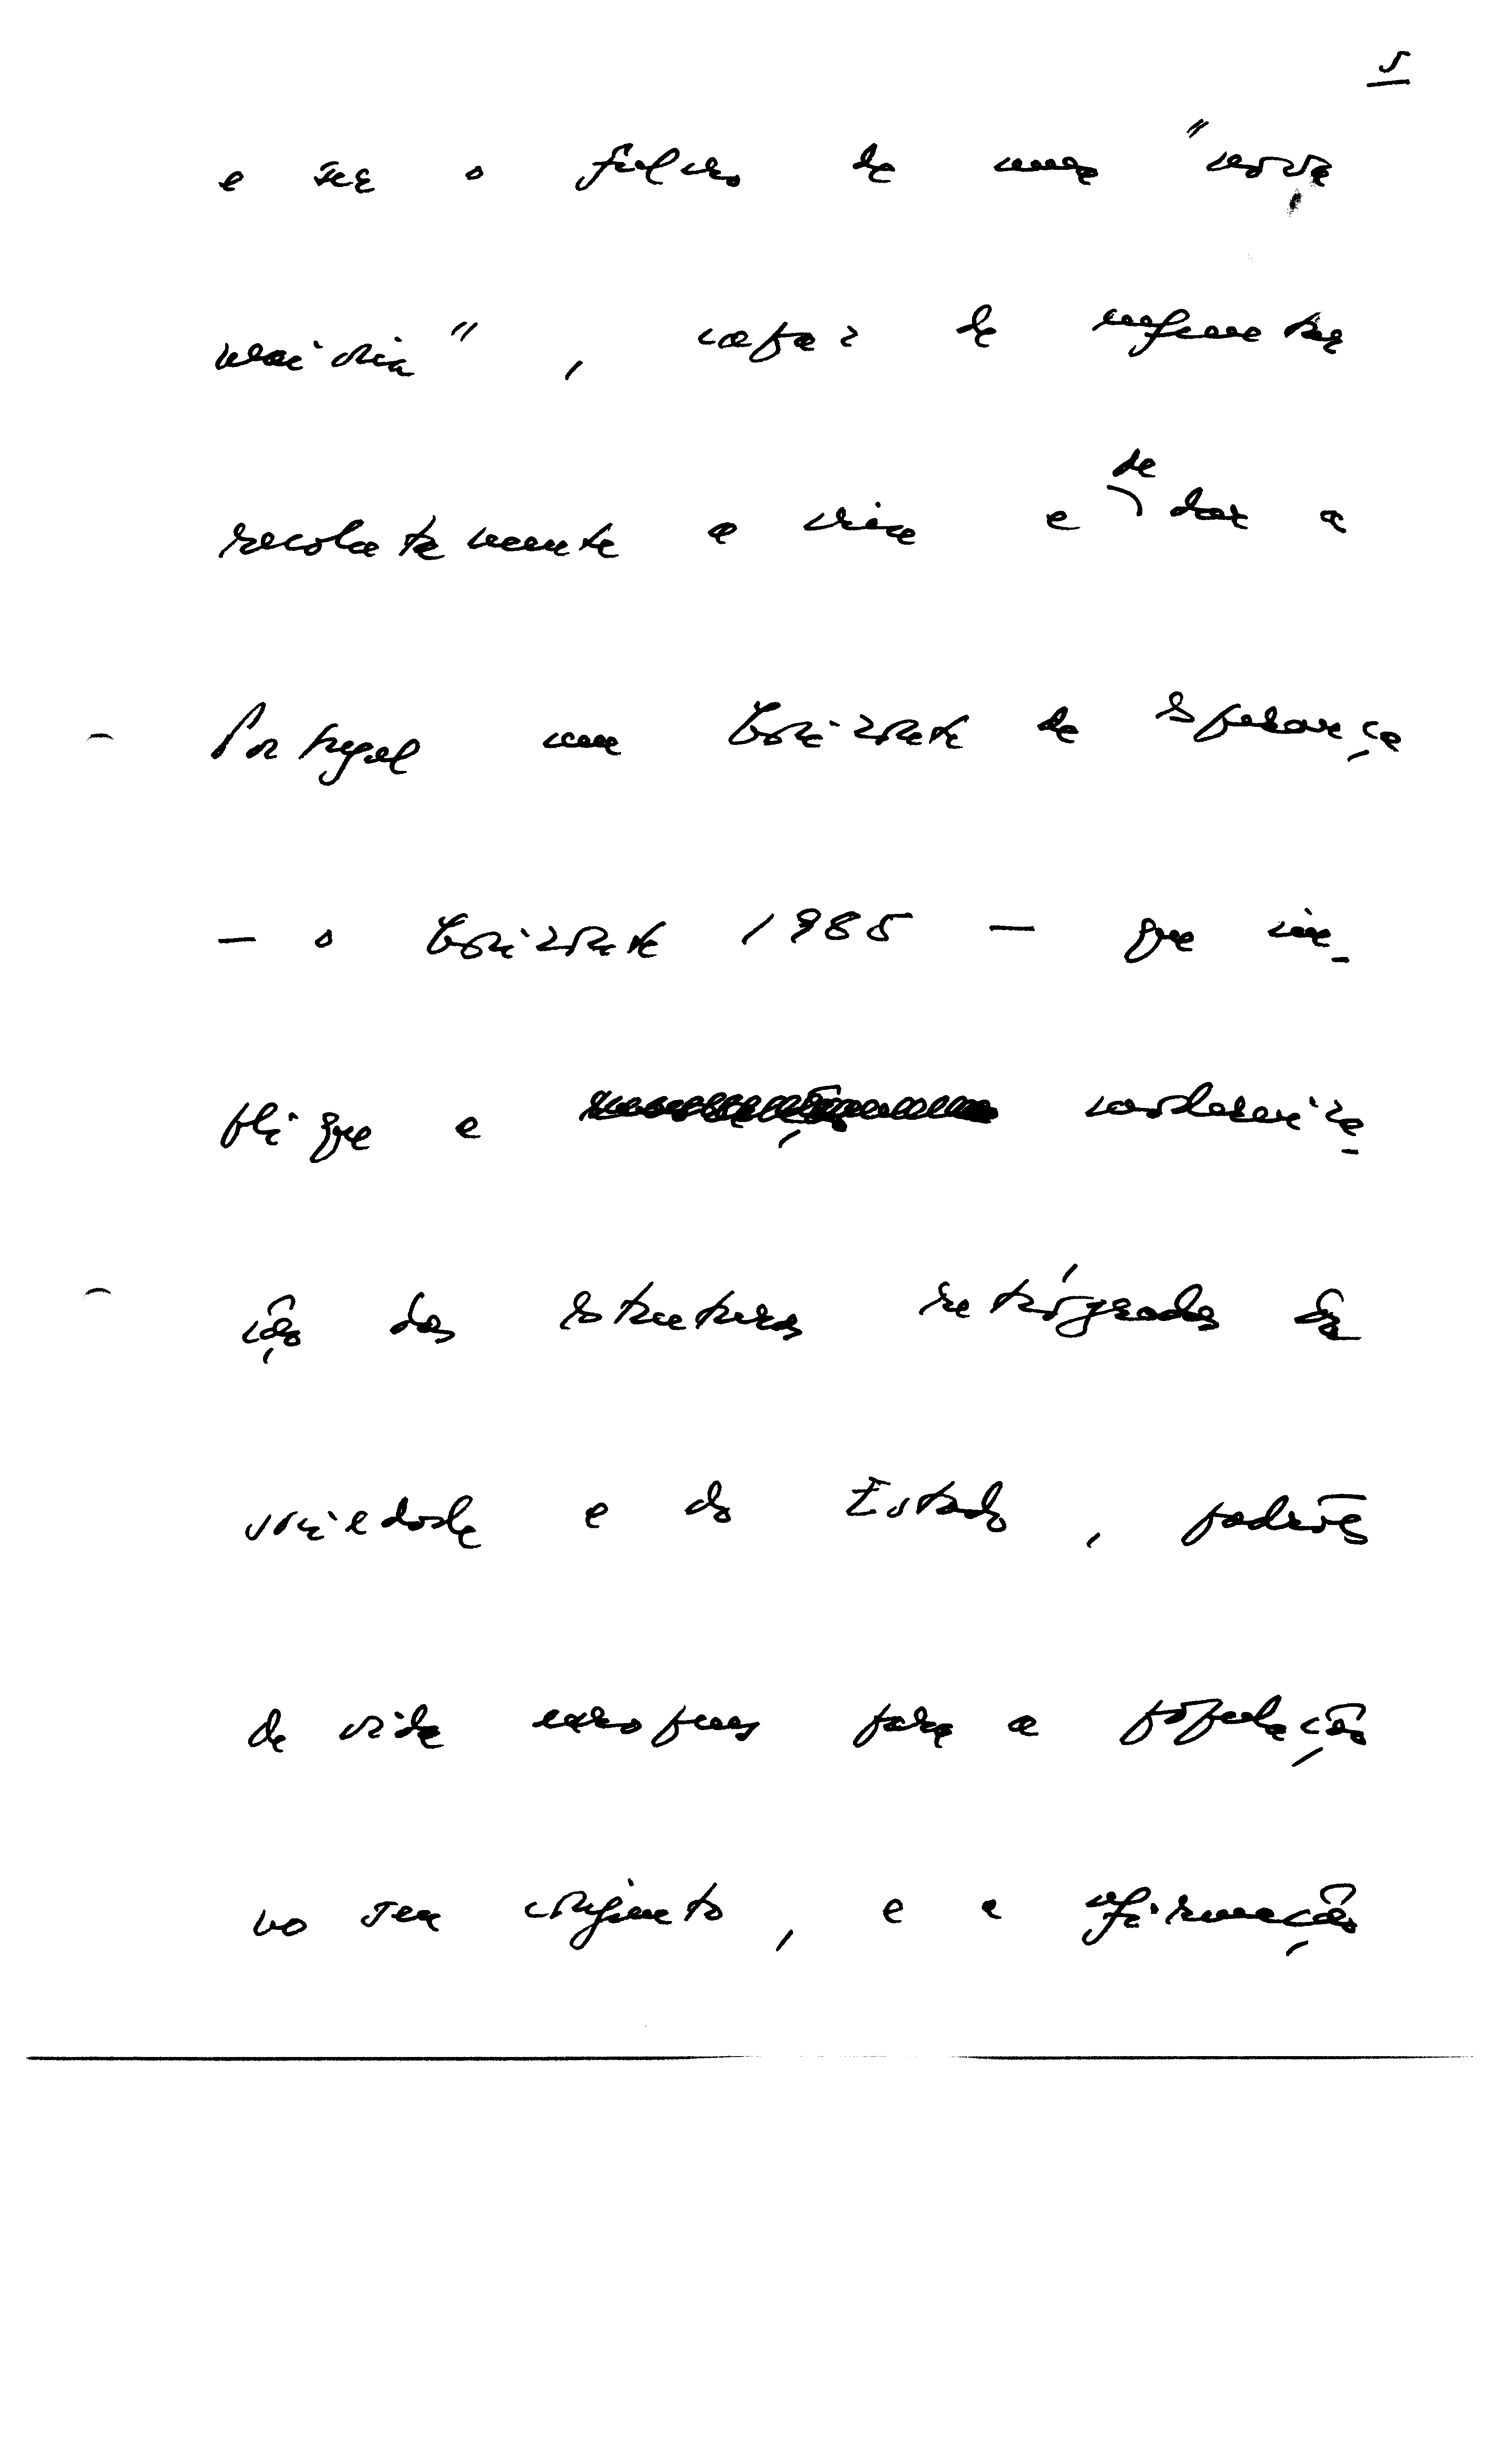 5
e ser o fulcro de uma "nova
maioria", capaz de enfrentar
resolutamente a crise e de dar a
Portugal um horizonte de esperança
- o horizonte 1985 - que im-
plique a modernização
ção das estruturas retrógradas da
sociedade e do Estado, padrões
de vida europeus para a população
no seu conjunto, e a afirmação